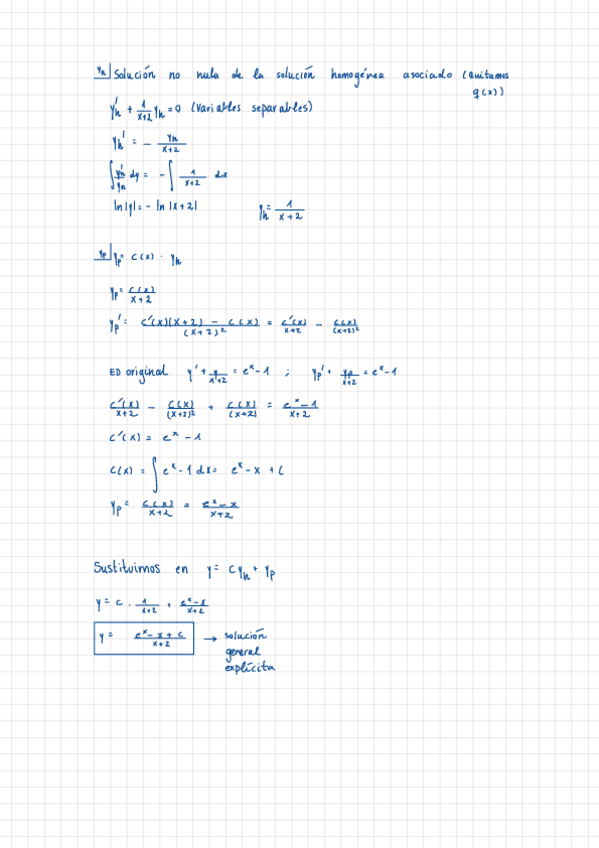 yh| Solución no nula de la solución homogénea asociado (quitamos
q(x))
yh' + 1/(x+2) yh = 0 (Variables separables)
yh' = - yh/(x+2)
∫ yh'/yh dy = - ∫ 1/(x+2) dx
ln|y| = - ln|x+2|    yh = 1/(x+2)
yp| yp = C(x) · yh
yp = C(x)/(x+2)
yp' = (C'(x)(x+2) - C(x))/(x+2)² = C'(x)/(x+2) - C(x)/(x+2)²
ED original y' + y/(x+2) = eˣ-1 ; yp' + yp/(x+2) = eˣ-1
C'(x)/(x+2) - C(x)/(x+2)² + C(x)/(x+2) = (eˣ-1)/(x+2)
C'(x) = eˣ - 1
C(x) = ∫ eˣ - 1 dx = eˣ - x + C
yp = C(x)/(x+2) = (eˣ - x)/(x+2)
Sustituimos en y = C yh + yp
y = C · 1/(x+2) + (eˣ-x)/(x+2)
y = (eˣ - x + C)/(x+2) → solución
general
explícita